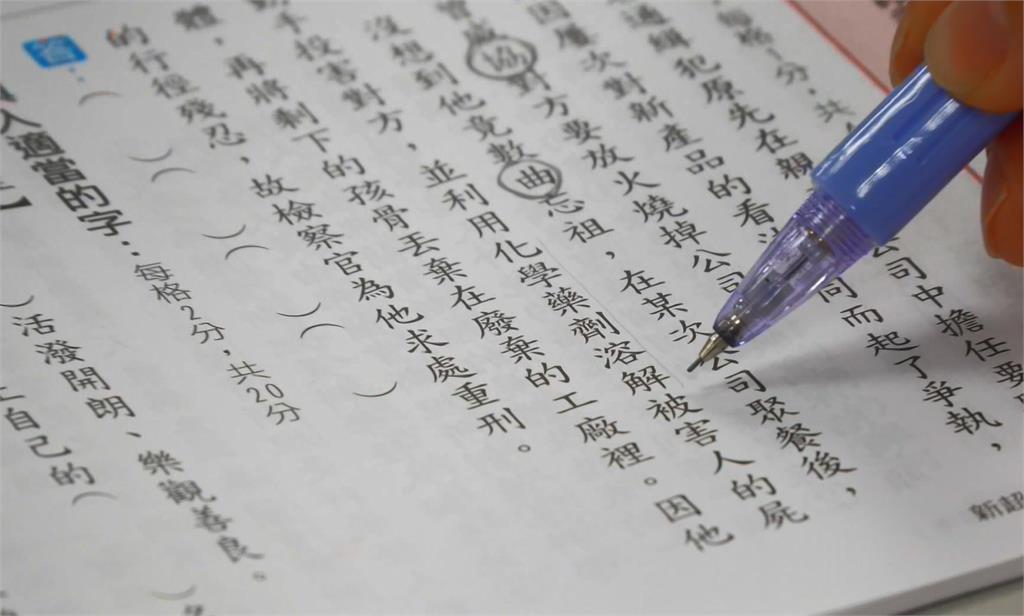 每格1分，共
通緝犯原先在親 公司中擔任要
因屢次對新產品的看 同而起了爭執，
曾威協對方要放火燒掉公司
沒想到他竟數曲忘祖，在某次公司聚餐後，
手投害對方，並利用化學藥劑溶解被害人的屍
體，再將剩下的孩骨丟棄在廢棄的工廠裡。因他
的行徑殘忍，故檢察官為他求處重刑。
答：（　）（　）（　）（　）
入適當的字：每格2分，共20分
）活潑開朗、樂觀善良。
自己的（
新超